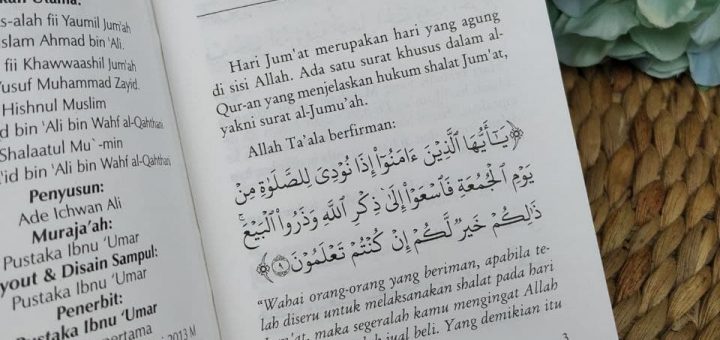 s-alah fii Yaumil Jum'ah
slam Ahmad bin 'Ali.
fii Khawwaashil Jum'ah
Yusuf Muhammad Zayid.
Hishnul Muslim
d bin 'Ali bin Wahf al-Qahthani
Shalaatul Mu`-min
'id bin 'Ali bin Wahf al-Qahthani
Penyusun:
Ade Ichwan Ali
Muraja'ah:
Pustaka Ibnu 'Umar
yout & Disain Sampul:
Pustaka Ibnu 'Umar
Penerbit:
Pustaka Ibnu 'Umar
pertama
2013 M
Hari Jum'at merupakan hari yang agung
di sisi Allah. Ada satu surat khusus dalam al-
Qur-an yang menjelaskan hukum shalat Jum'at,
yakni surat al-Jumu'ah.
Allah Ta'ala berfirman:
﴿يَـٰٓأَيُّهَا ٱلَّذِينَ ءَامَنُوٓا۟ إِذَا نُودِىَ لِلصَّلَوٰةِ مِن
يَوْمِ ٱلْجُمُعَةِ فَٱسْعَوْا۟ إِلَىٰ ذِكْرِ ٱللَّهِ وَذَرُوا۟ ٱلْبَيْعَ ۚ
ذَٰلِكُمْ خَيْرٌ لَّكُمْ إِن كُنتُمْ تَعْلَمُونَ ٩﴾
"Wahai orang-orang yang beriman, apabila te-
lah diseru untuk melaksanakan shalat pada hari
Jum'at, maka segeralah kamu mengingat Allah
jual beli. Yang demikian itu
3